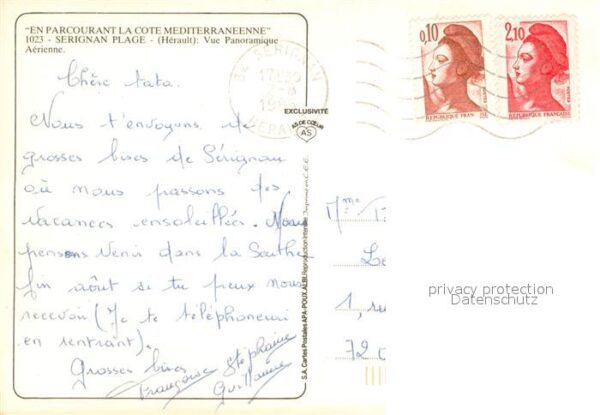 "EN PARCOURANT LA COTE MEDITERRANEENNE"
1023 - SERIGNAN PLAGE - (Hérault): Vue Panoramique
Aérienne.
Chère tata.
Nous t'envoyons de
grosses bises de Sérignan
où nous passons des
vacances ensoleillées. Nous
pensons venir dans la Sarthe
fin août si tu peux nous
recevoir (Je te téléphonerai
en rentrant).
Grosses bises
Françoise Stéphanie
Guillaume
34 SERIGNAN
17H30
HERAULT
EXCLUSIVITÉ
AS DE CŒUR
AS
S.A. Cartes Postales APA-POUX, ALBI Reproduction Interdite Imprimé en C.E.E.
0,10
REPUBLIQUE FRAN
2,10
REPUBLIQUE FRANÇAISE
Mme
Le
1, ru
72
privacy protection
Datenschutz